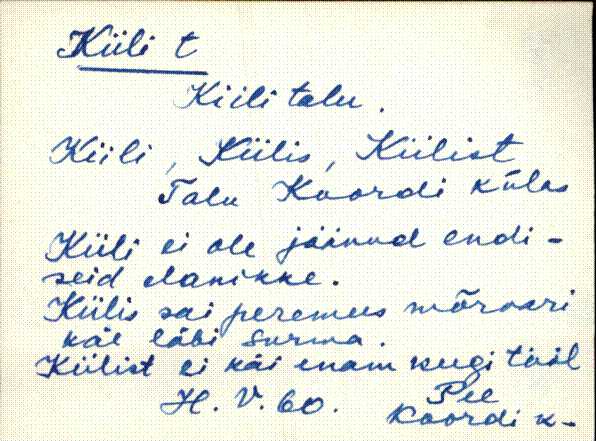 Kiili t
Kiili talu.
Kiili, Kiilis, Kiilist
Talu Koordi külas
Kiili ei ole jäänud endi-
seid elanikke.
Kiilis sai peremees mõrvari
käe läbi surma.
Kiilist ei käi enam keegi tööl
H. V. 60. Pee
Koordi k-